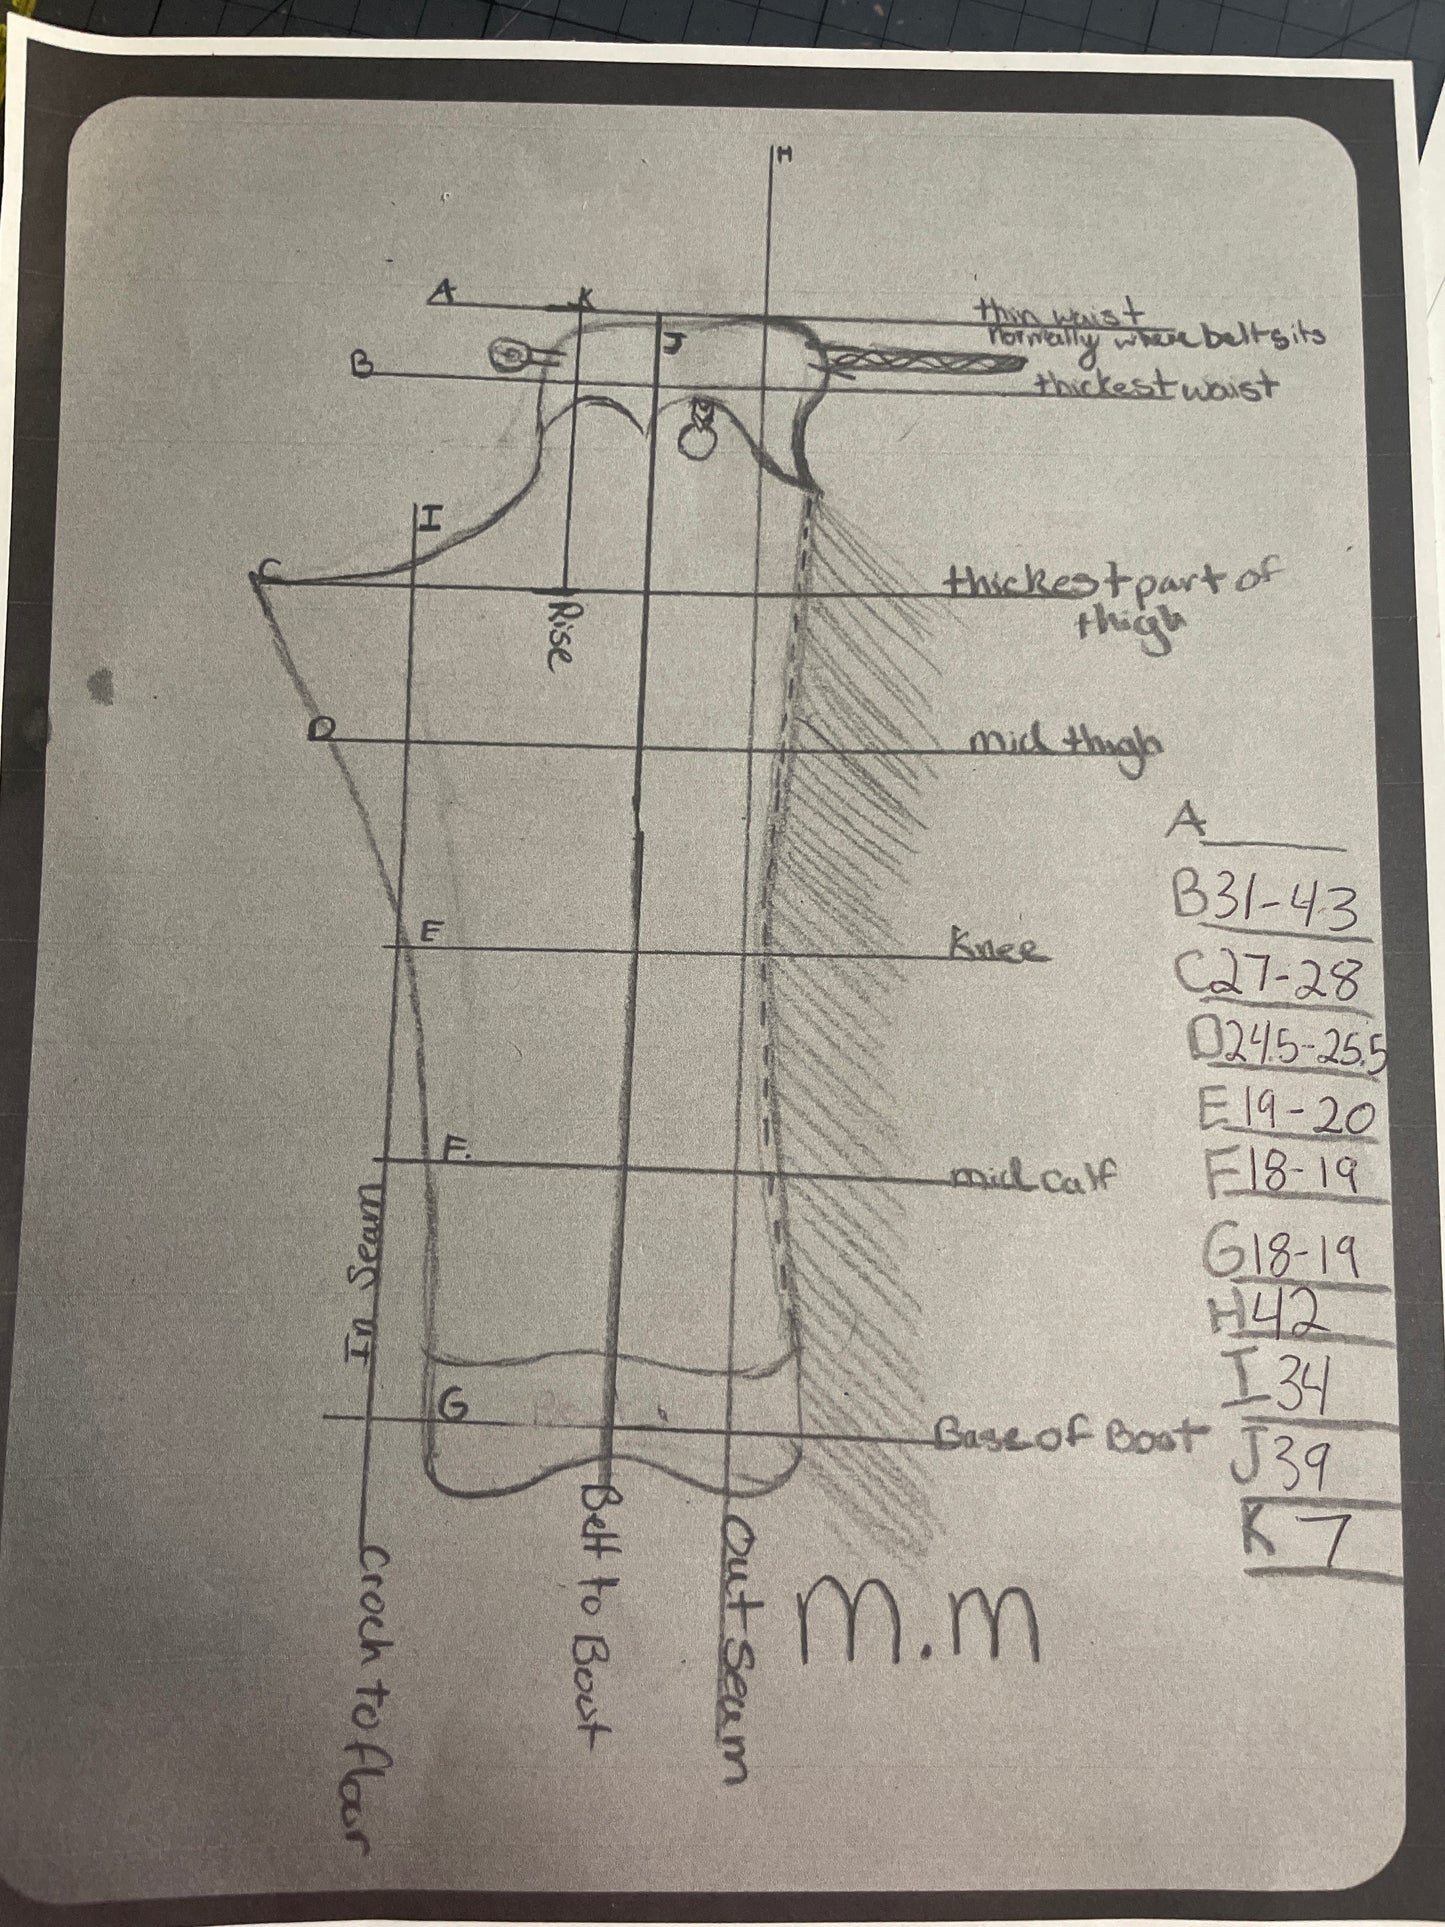 H
A
K
thin waist
normally where belt sits
J
B
thickest waist
I
C
thickest part of
thigh
Rise
D
mid thigh
A
B 31-43
E
Knee
C 27-28
D 24.5-25.5
E 19-20
F.
mid calf
F 18-19
In Seam
G 18-19
H 42
I 34
G
Base of Boot
J 39
K 7
Croch to floor
Belt to Boot
Out Seam
m.m